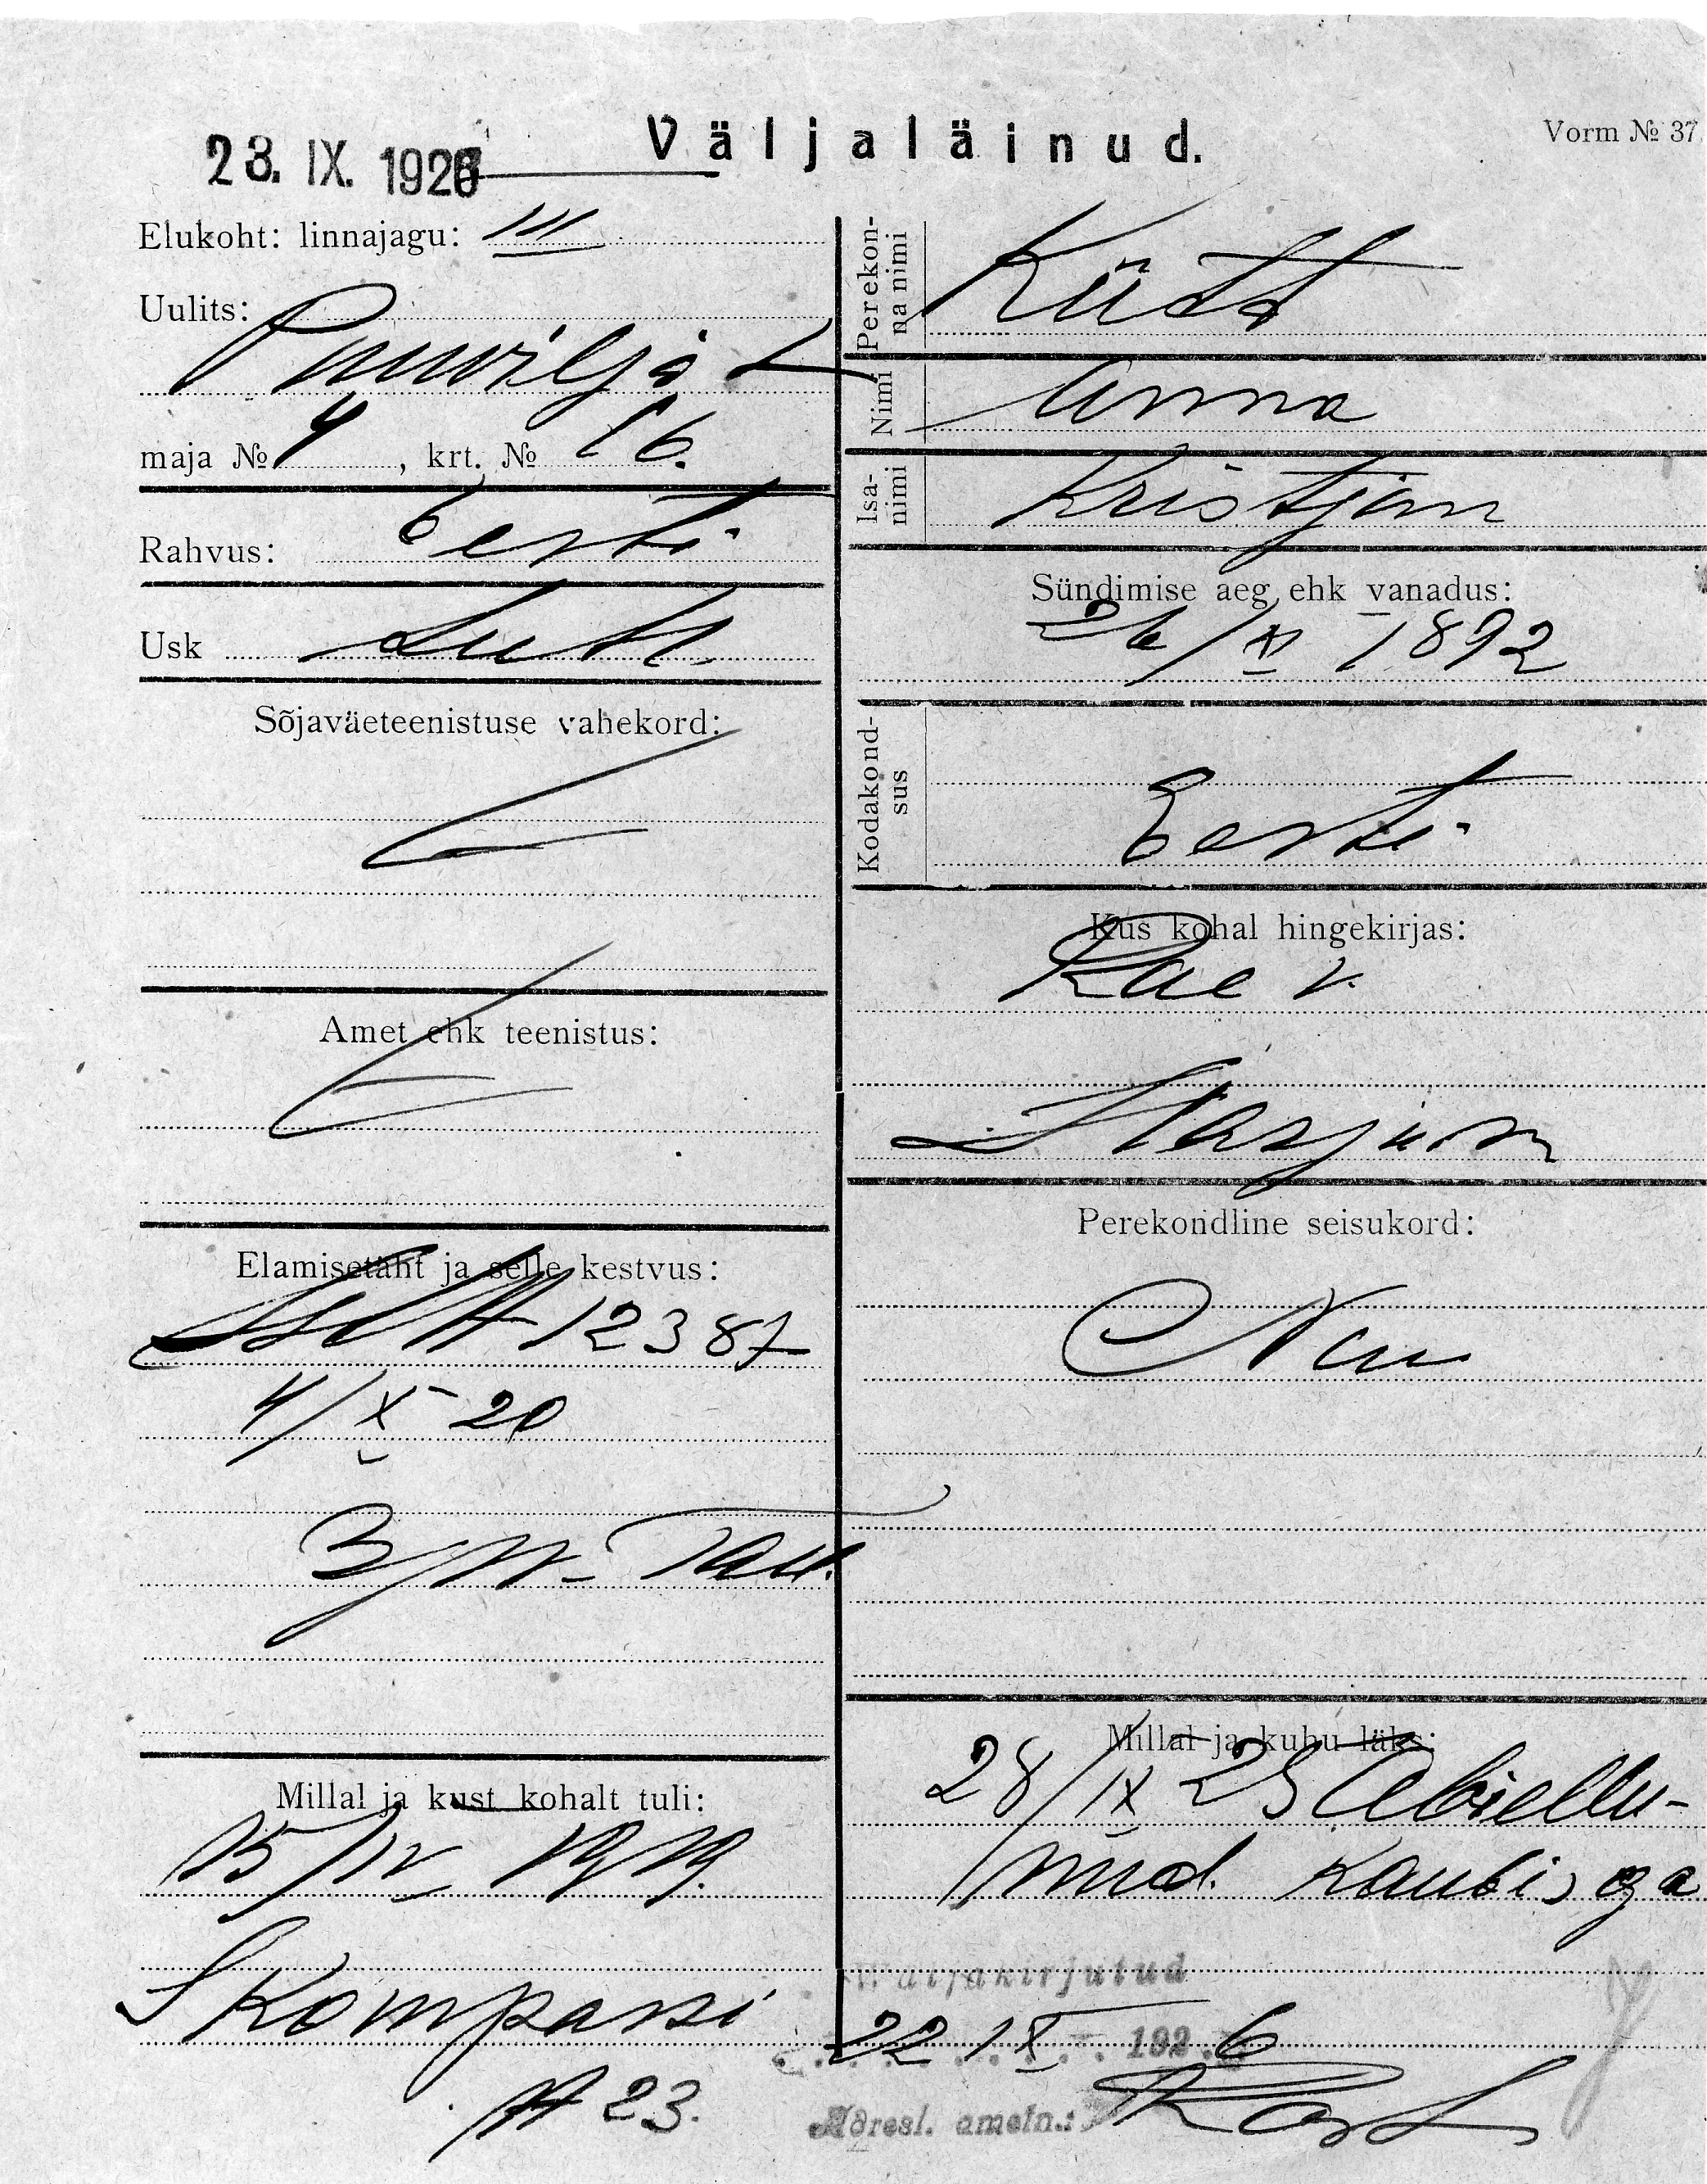 Väljaläinud.
Vorm № 37
23. IX. 1926
Elukoht: linnajagu: III
Uulits:
Puuvilja
maja № 4, krt. № 16.
Rahvus: Eesti
Usk Luth
Sõjaväeteenistuse vahekord:
Amet ehk teenistus:
Elamisetäht ja selle kestvus:
12387
4/X 20
Tall.
Millal ja kust kohalt tuli:
15/IV 1919.
Kompassi
№ 23.
Perekonna nimi
Kütt
Nimi
Anna
Isanimi
Kristjan
Sündimise aeg ehk vanadus:
26/XI 1892
Kodakondsus
Eesti
Kus kohal hingekirjas:
Rae v.
Harjum
Perekondline seisukord:
Millal ja kuhu läks:
28/IX 25 Abiellu-
nud. Kaubi, ga
Wäljakirjutud
22 IX 1926
Adresl. ametn.: